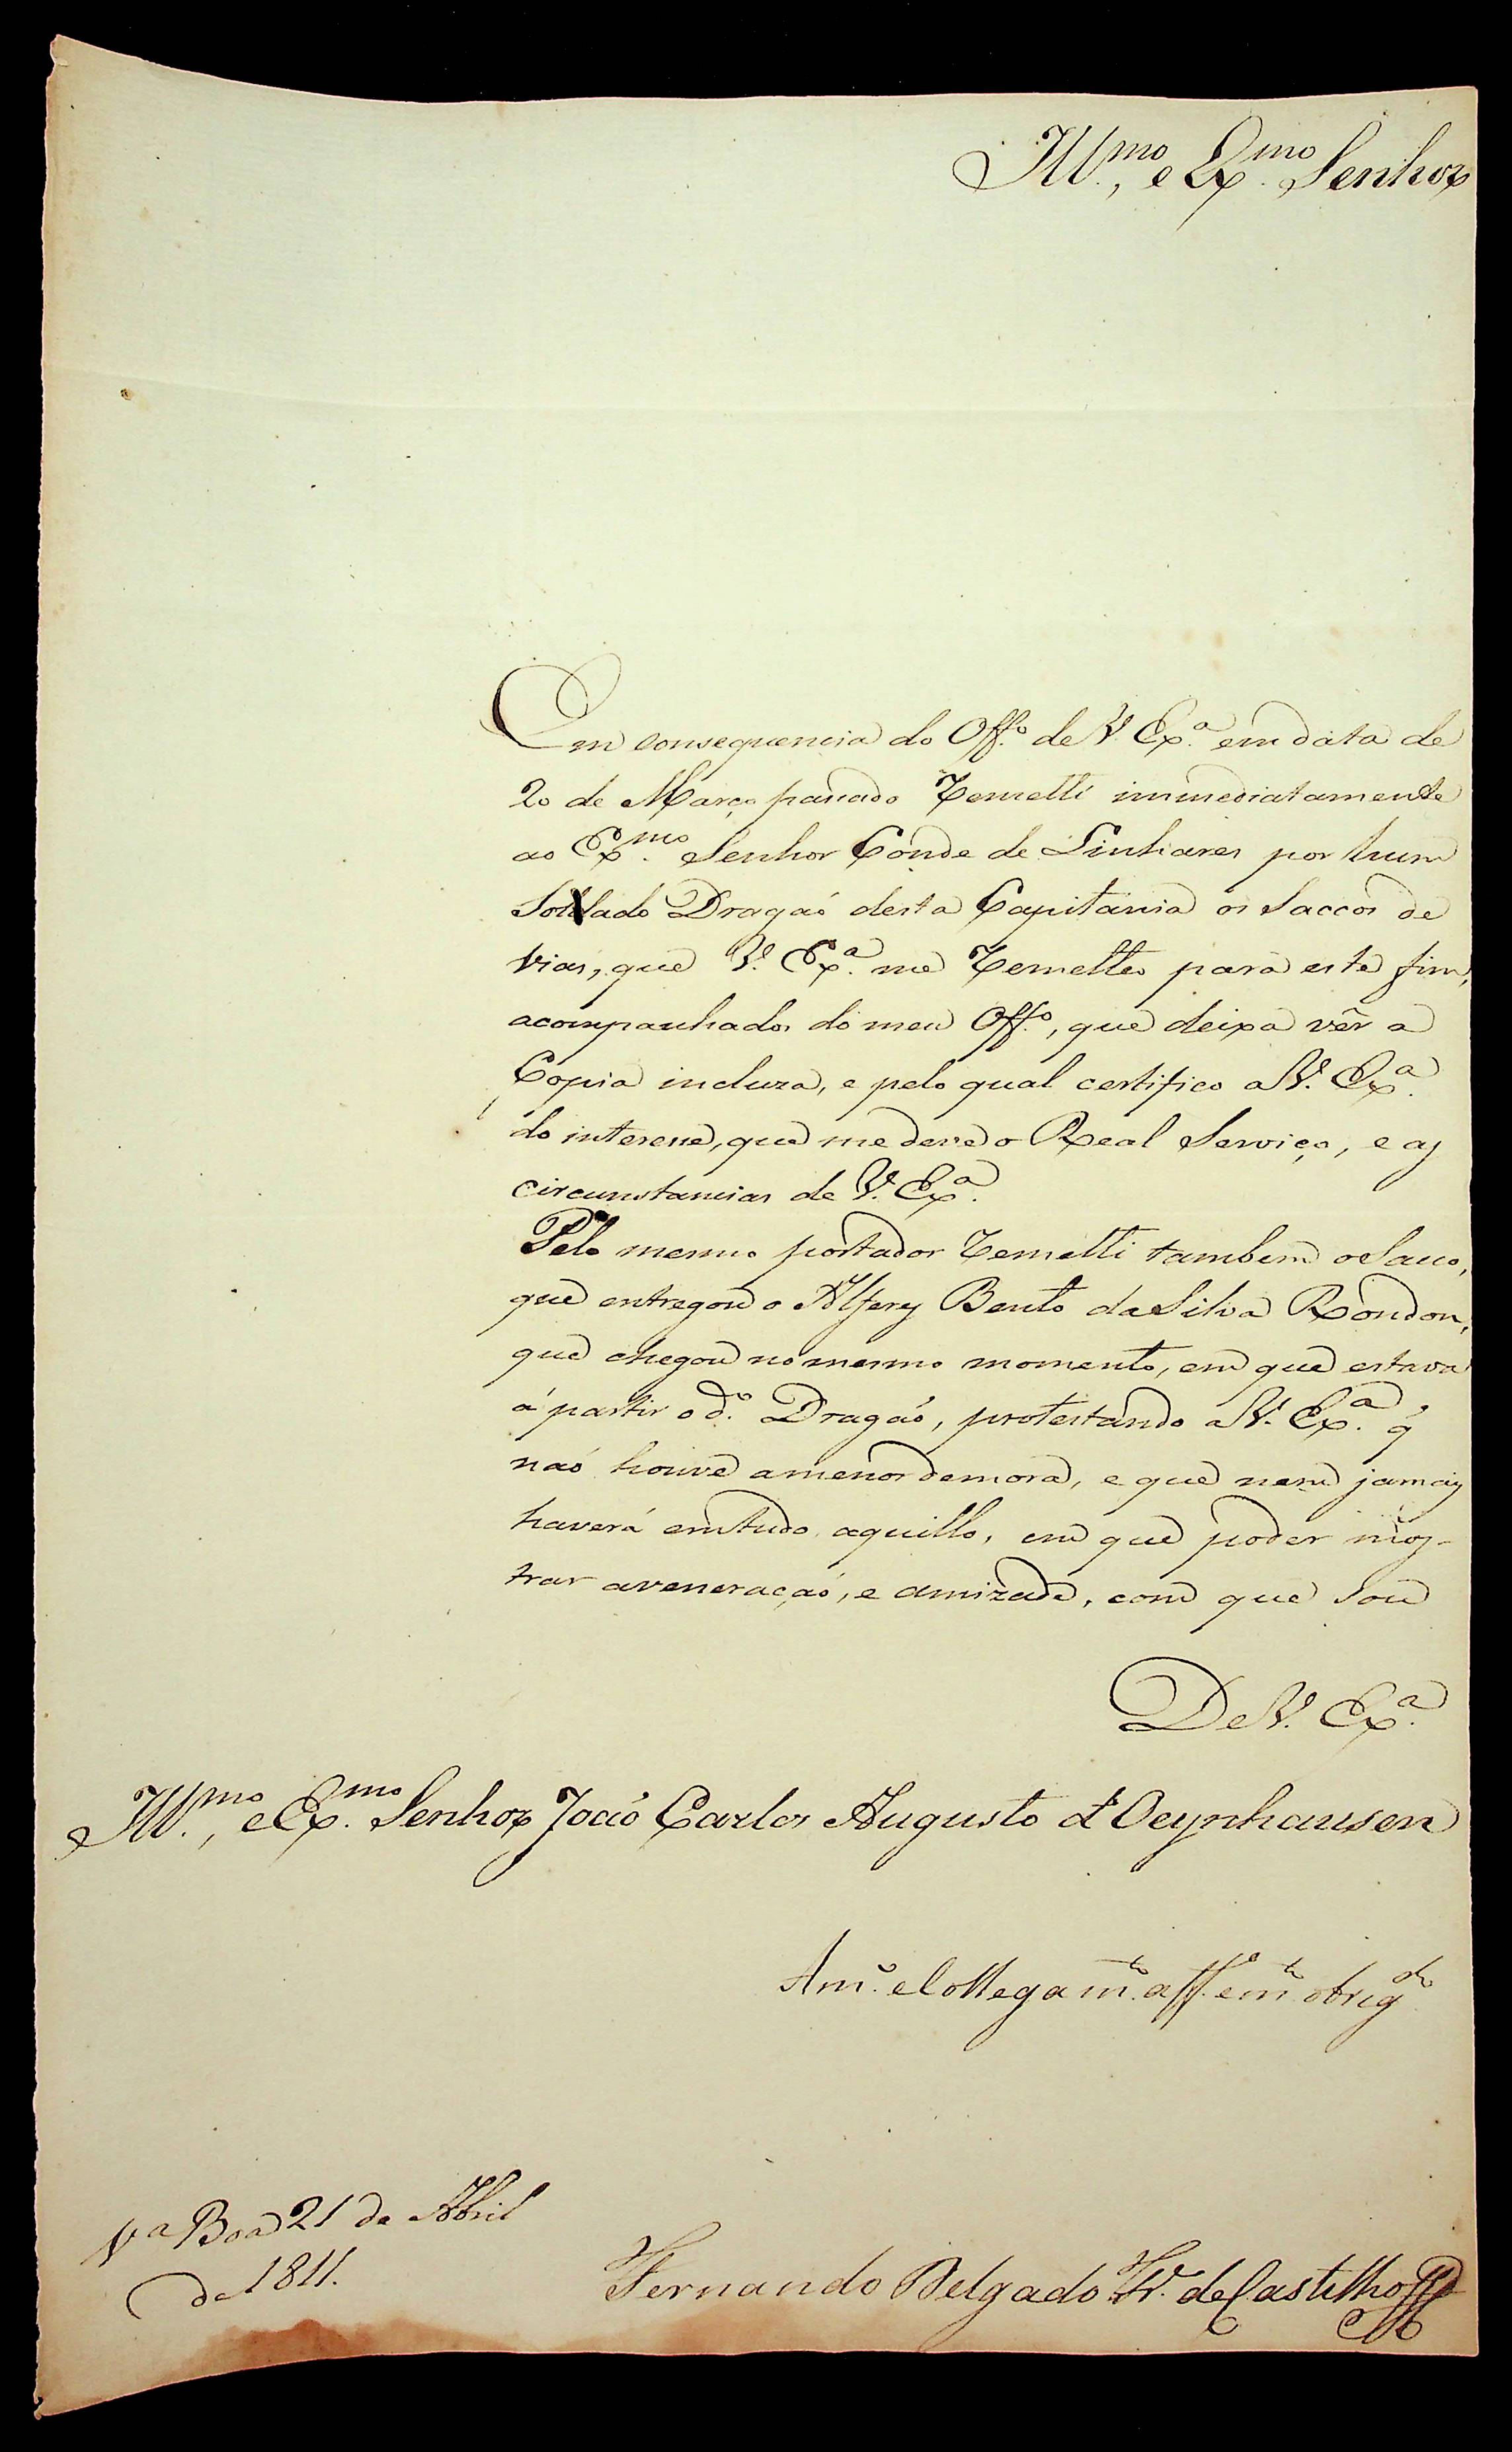 Ill.mo, e Ex.mo Senhor
Em consequencia do Off.o de V. Ex.a em data de
20 de Março passado Remetti immediatamente
ao Ex.mo Senhor Conde de Linhares por hum
Soldado Dragaõ desta Capitania os Saccos de
vias, que V. Ex.a me Remetteo para este fim,
acompanhados do meu Off.o, que deixa vêr a
Copia incluza, e pelo qual certifico a V. Ex.a
do interesse, que me deve o Real Serviço, e as
circunstancias de V. Ex.a.
Pelo mesmo portador Remetti tambem o Sacco,
que entregou o Alferes Bento da Silva Rondon,
que chegou no mesmo momento, em que estava
á partir o d.o Dragaõ, protestando a V. Ex.a q̃
naõ houve a menor demora, e que nem jamais
haverá em tudo aquillo, em que poder mos-
trar a veneraçaõ, e amizade, com que sou
De V. Ex.a
Ill.mo, e Ex.mo Senhor Joaõ Carlos Augusto d'Oeynhausen
Am.o e Collega m.to aff.o e m.to obrig.do
V.a Boa 21 de Abril
de 1811.
Fernando Delgado Fr. de Castilho